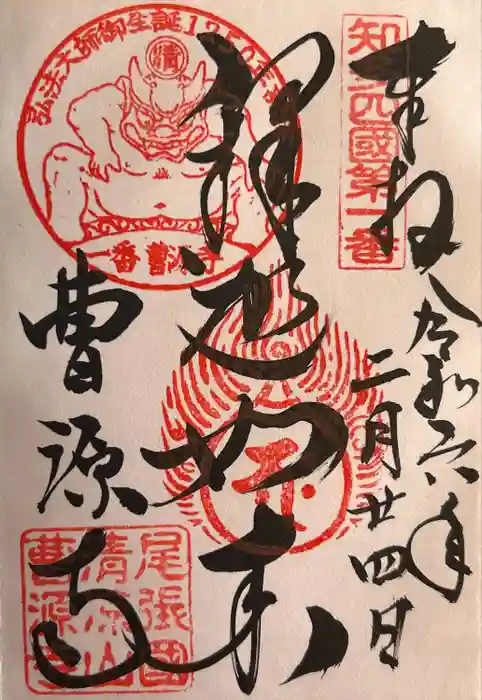 奉拝
令和六年
二月廿四日
知四國第一番
釋迦如来
弘法大師御生誕1250年
清
一番 曹源寺
曹源寺
尾張國
清涼山
曹源寺